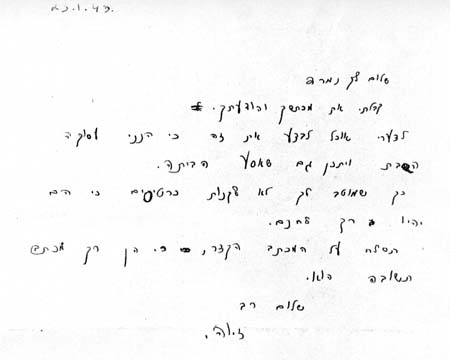 23.1.43.
שלום לך נמרה
קבלתי את מכתבך והודעתך.
לצערי אוכל לבצע את זה כי הנני עסוקה
השבת ויתכן גם שאסע הביתה.
כך שמוטב לך לא לקנות כרטיסים כי הם
יהיו רק לחנם.
תסלח על המכתב הקצר, כי הן רק מכתב
תשובה הוא.
שלום רב